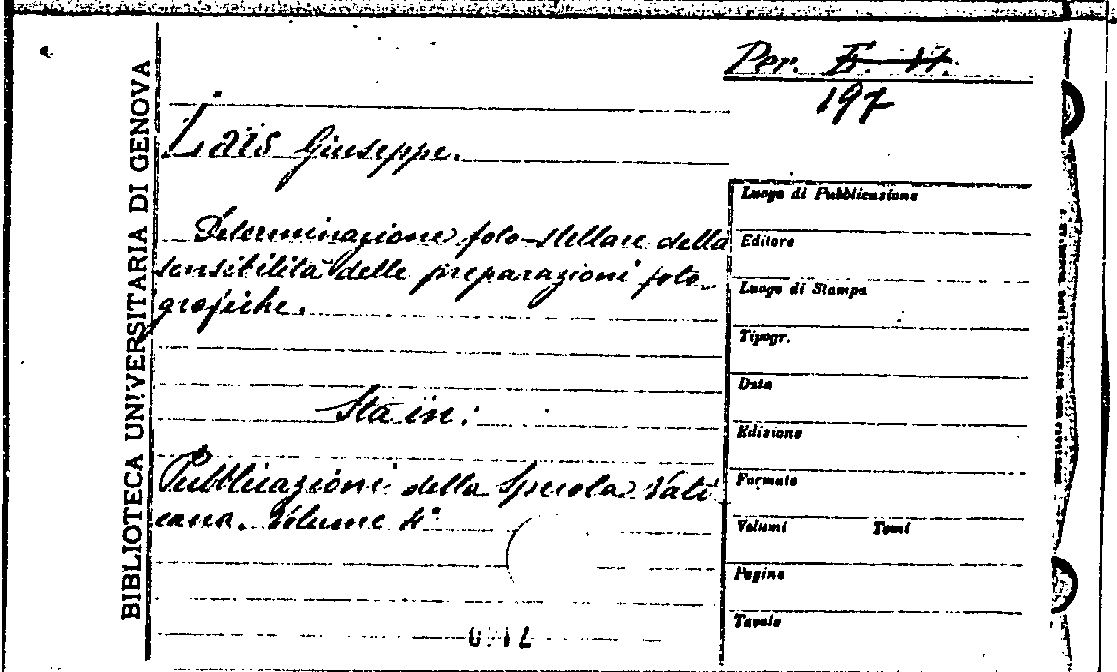 BIBLIOTECA UNIVERSITARIA DI GENOVA
Per. F. VI.
197
Lais Giuseppe.
Determinazione foto-stellare della
sensibilità delle preparazioni foto-
grafiche.
Sta in:
Pubblicazioni della Specola Vati
cana. Volume 4°
Luogo di Pubblicazione
Editore
Luogo di Stampa
Tipogr.
Data
Edizione
Formato
Volumi Tomi
Pagine
Tavole